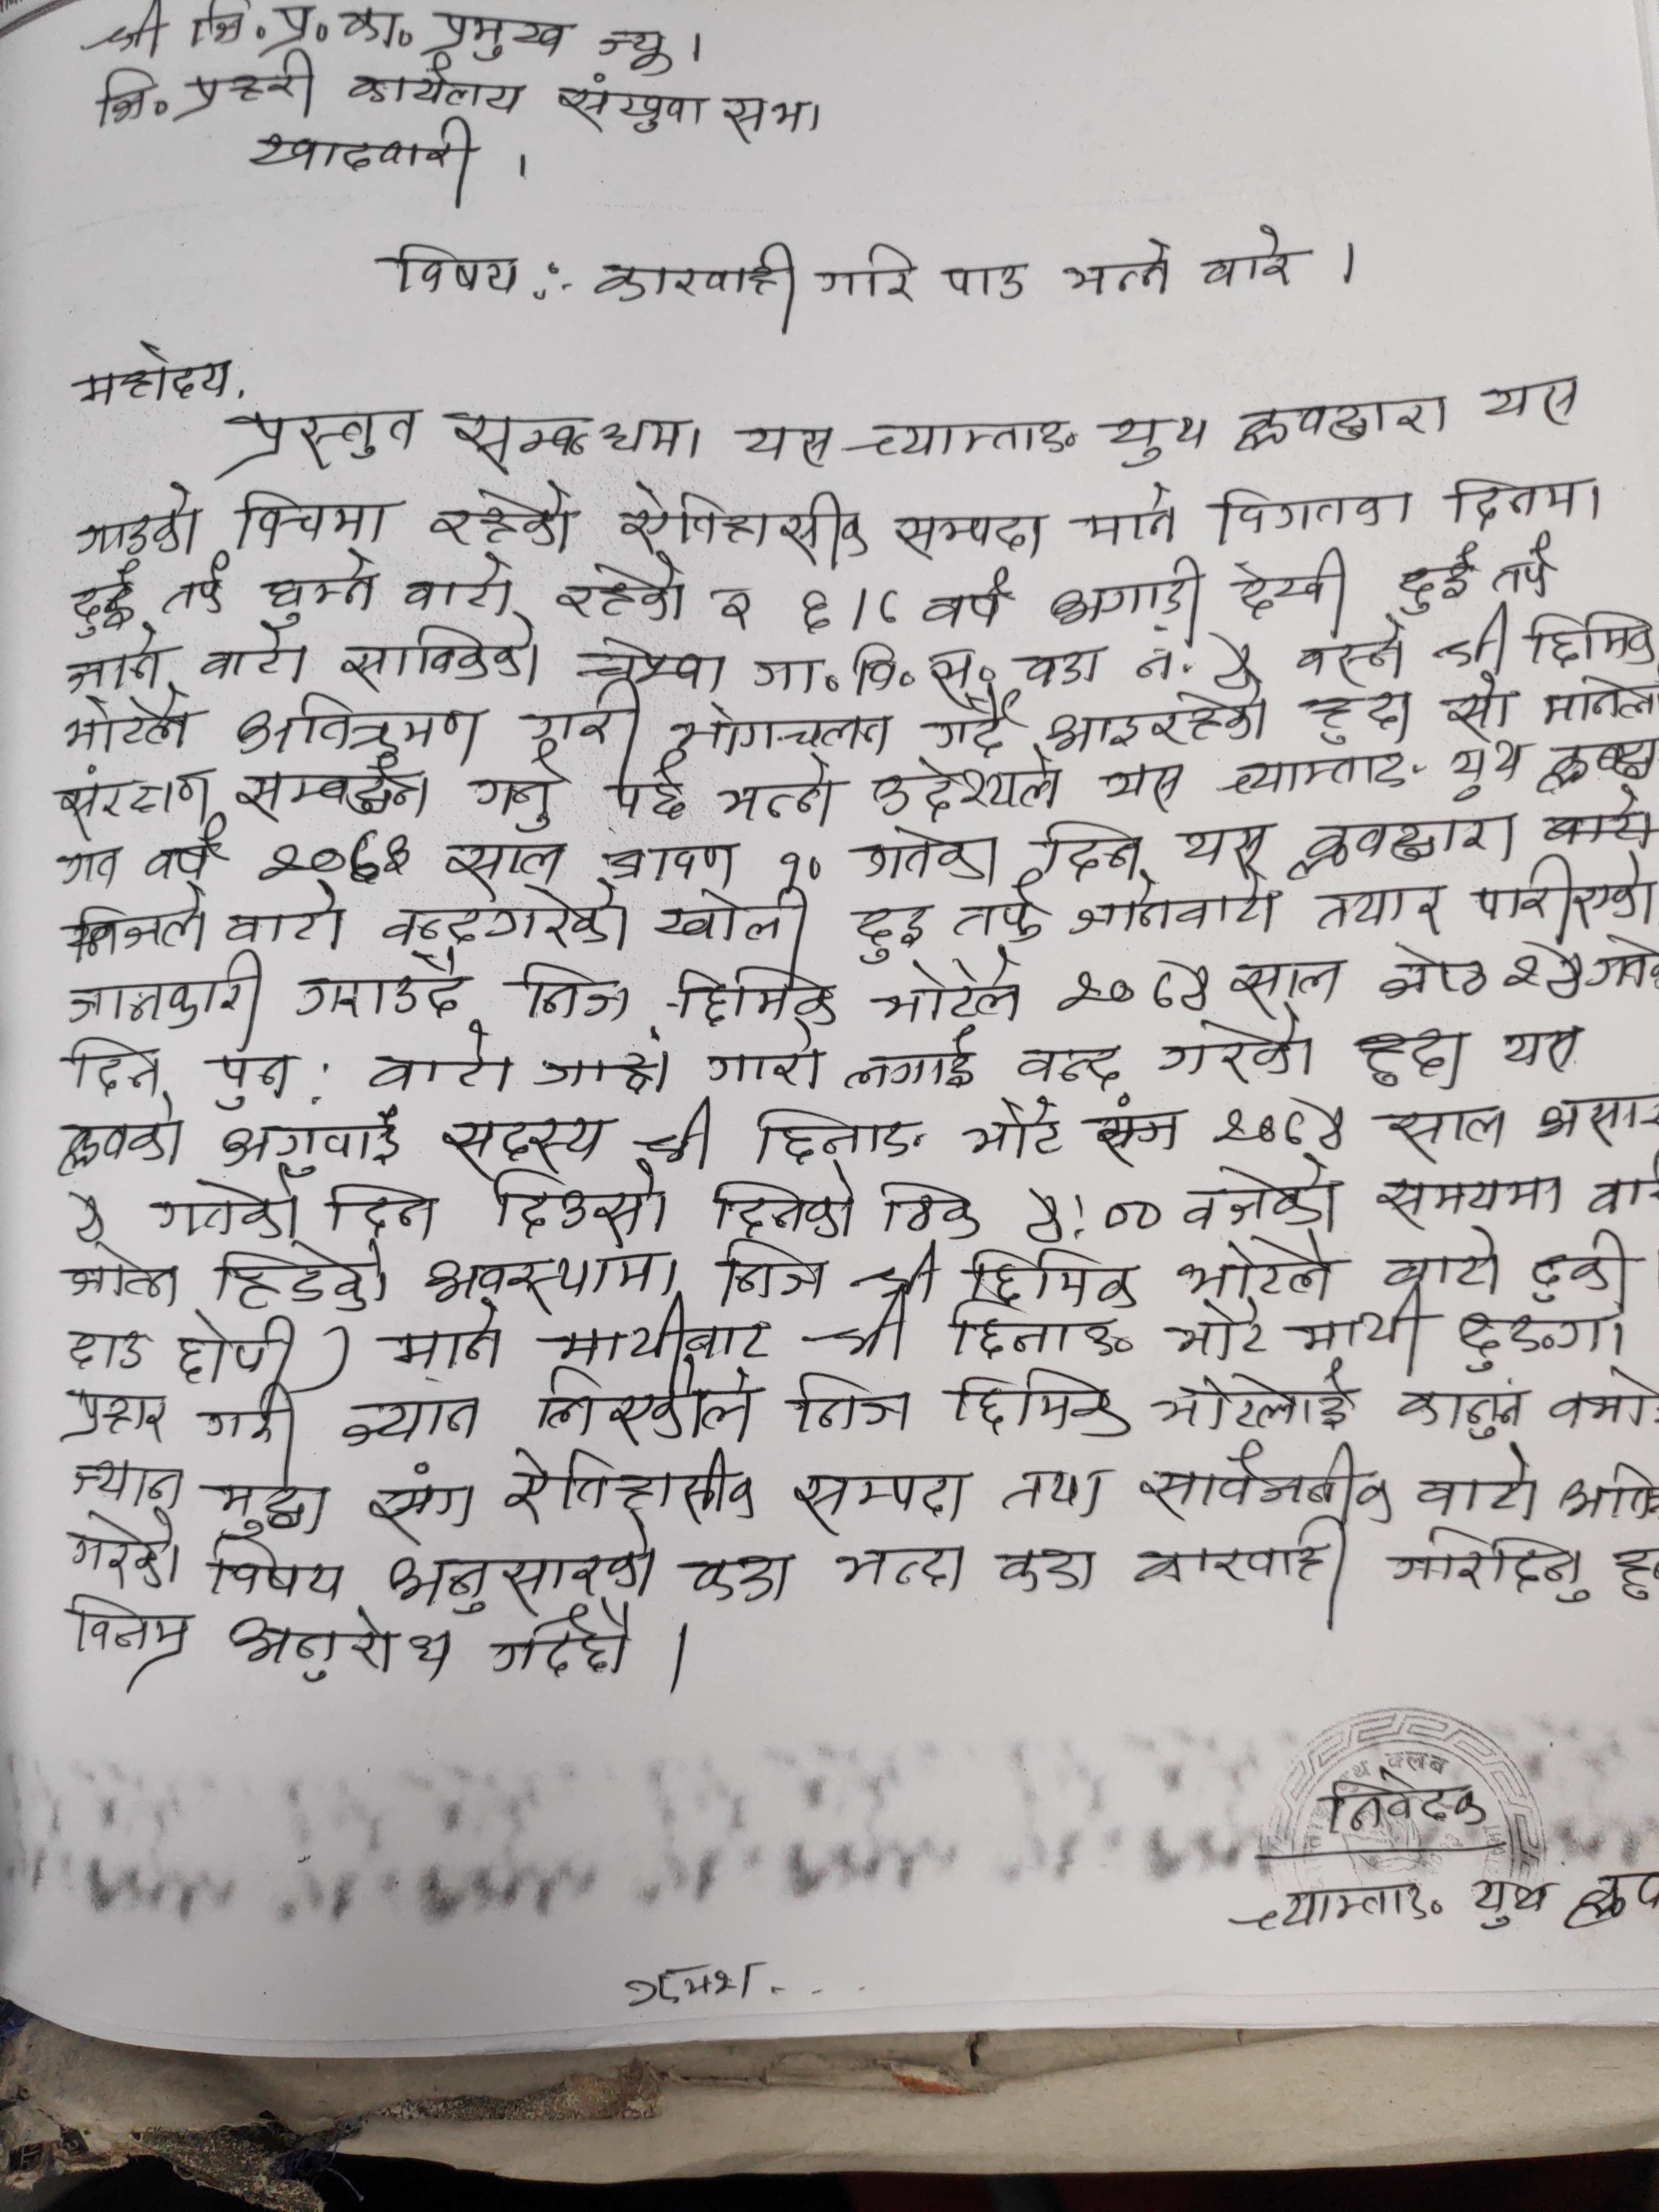 श्री जि.प्र.का. प्रमुख ज्यू ।
जि. प्रहरी कार्यलय संखुवा सभा
खादवारी ।
विषय :- कारवाही गरि पाउ भन्ने वारे ।
महोदय,
प्रस्तुत सम्बन्धमा यस च्याम्ताङ युथ क्लवद्वारा यस
गाउको विचमा रहेको ऐतिहासीक सम्पदा माने विगतका दिनमा
दुई तर्फ घुम्ने वाटो रहेको र ६/८ वर्ष अगाडी देखी दुई तर्फ
जाने वाटो साविकको चेप्वा गा.वि.स. वडा नं. ५ वस्ने श्री छिमिक
भोटेले अतिक्रमण गरी भोगचलन गर्दै आइरहेको हुदा सो मानेला
संरक्षण सम्वर्द्धन गर्नु पर्छ भन्ने उदेश्यले यस च्याम्ताङ युथ
गत वर्ष साल श्रावण १० गतेका दिन यस क्लवद्वारा
निजले वाटो वन्दगरेको खोली दुइ तर्फ जानेवाटो तयार पारीएको
जानकारी गराउदै निज छिमिक भोटेले २०८५ साल जेठ २५ गते
दिन पुन: वाटो गाह्रो गारो लगाई वन्द गरेको हुदा यस
क्लवको अगुवाई सदस्य श्री छिनाङ भोटे संग २०८५ साल असार
५ गतेको दिन दिउसो दिनको ठिक ५:०० वजेको समयमा
हिडेको अवस्थामा निज श्री छिमिक भोटेले वाटो ढुकी
दाउ छोपी माने माथीबाट श्री छिनाङ भोटे माथी ढुङगा
प्रहार गरी ज्यान निज छिमिक भोटेलाई कानुन
ज्यान मुद्दा संग ऐतिहासीक सम्पदा तथा सार्वजनीक वाटो
गरेको विषय अनुसारको कडा भन्दा कडा कारवाही गरिदिनु
विनम्र अनुरोध गर्दछौ ।
युथ क्लब
निवेदक
च्याम्ताङ युथ